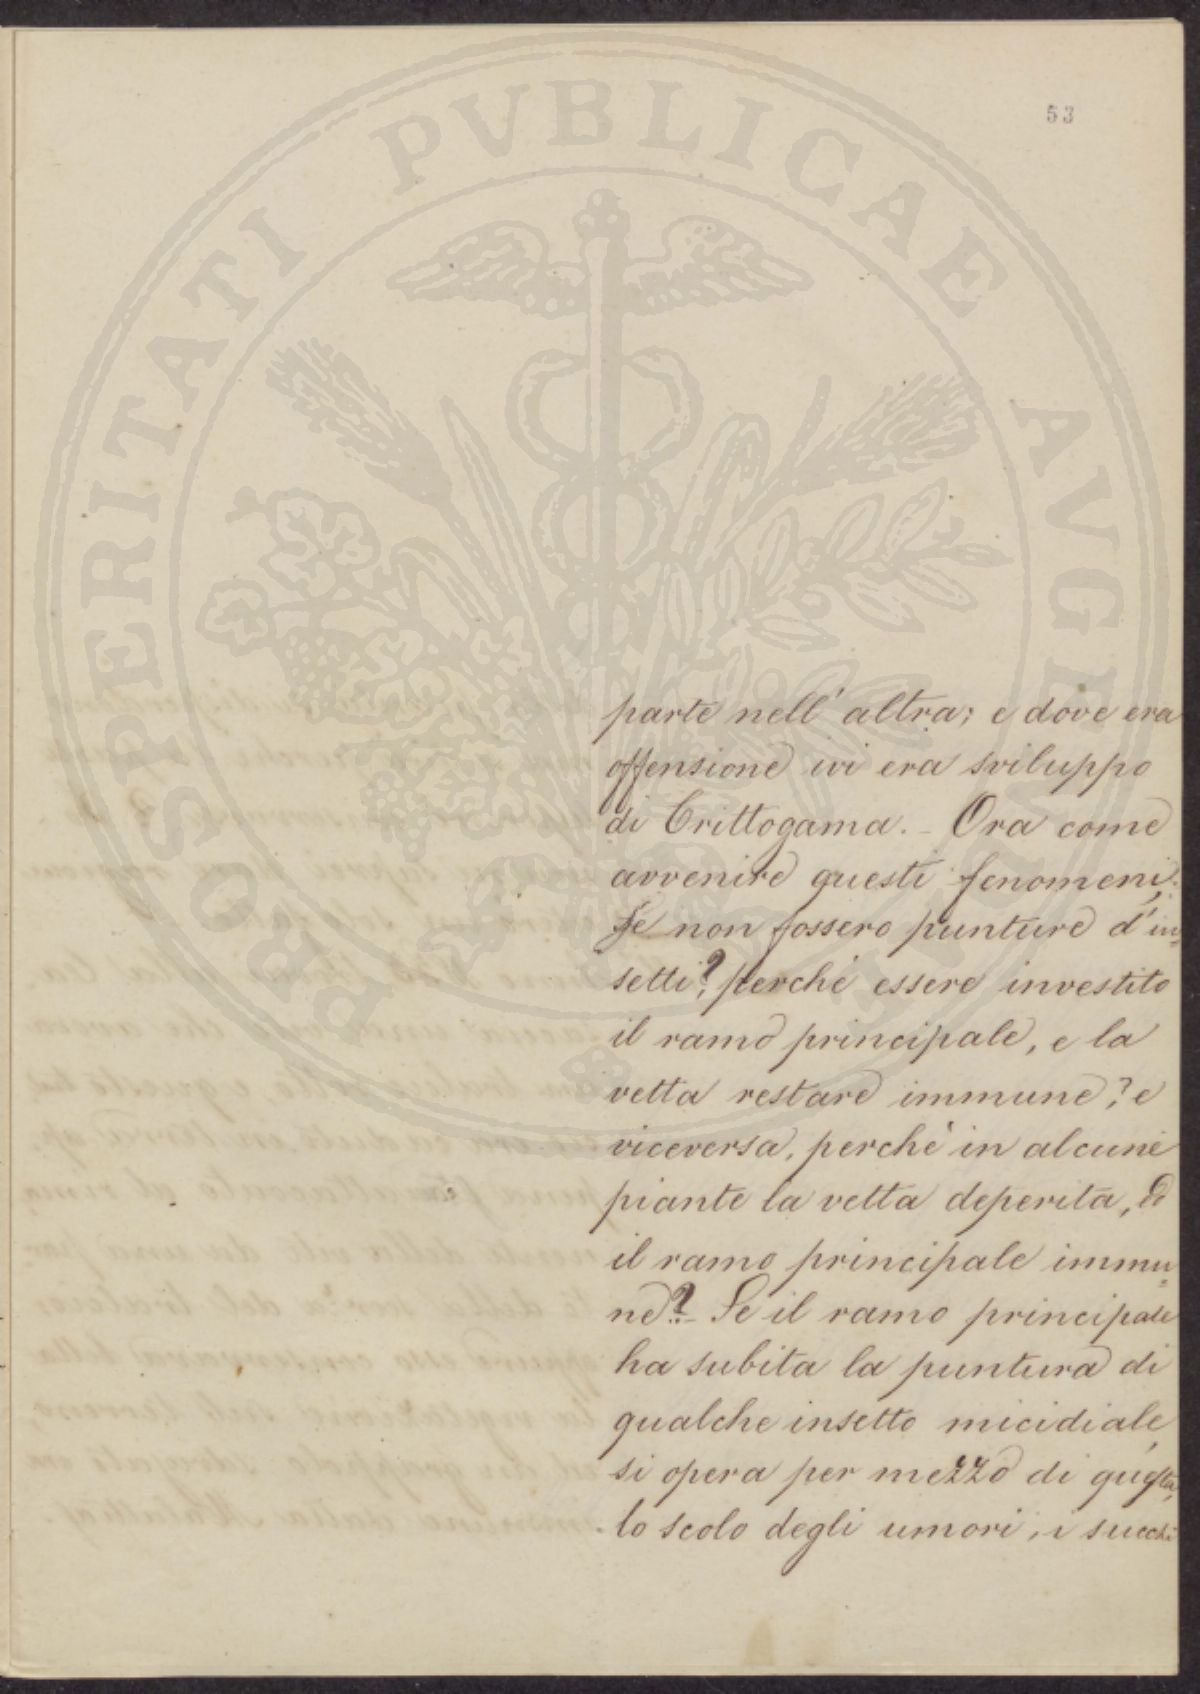 53
PROSPERITATI PUBLICAE AUGENDAE
parte nell' altra; e dove era
offensione ivi era sviluppo
di Crittogama. - Ora come
avvenire questi fenomeni,
se non fossero punture d' in=
setti? perché essere investito
il ramo principale, e la
vetta restare immune? e
viceversa, perchè in alcune
piante la vetta deperita, e
il ramo principale immu=
ne? - Se il ramo principale
ha subita la puntura di
qualche insetto micidiale,
si opera per mezzo di questa,
lo scolo degli umori, i succhi